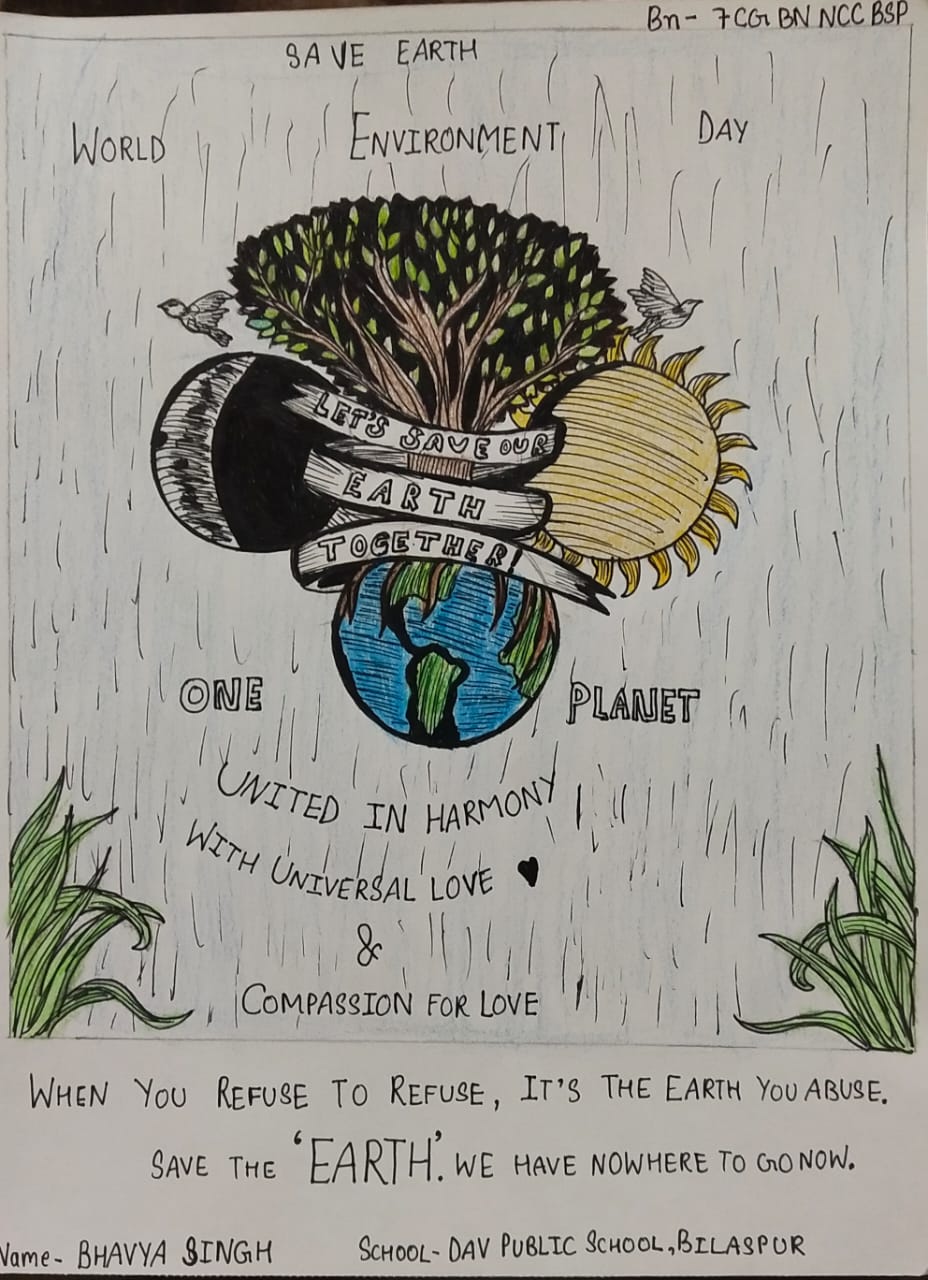 Bn- 7CG BN NCC BSP
SAVE EARTH
WORLD ENVIRONMENT DAY
LET'S SAVE OUR
EARTH
TOGETHER!
ONE PLANET
UNITED IN HARMONY
WITH UNIVERSAL LOVE ♥
&
COMPASSION FOR LOVE
WHEN YOU REFUSE TO REFUSE, IT'S THE EARTH YOU ABUSE.
SAVE THE 'EARTH'. WE HAVE NOWHERE TO GO NOW.
Name- BHAVYA SINGH SCHOOL- DAV PUBLIC SCHOOL, BILASPUR